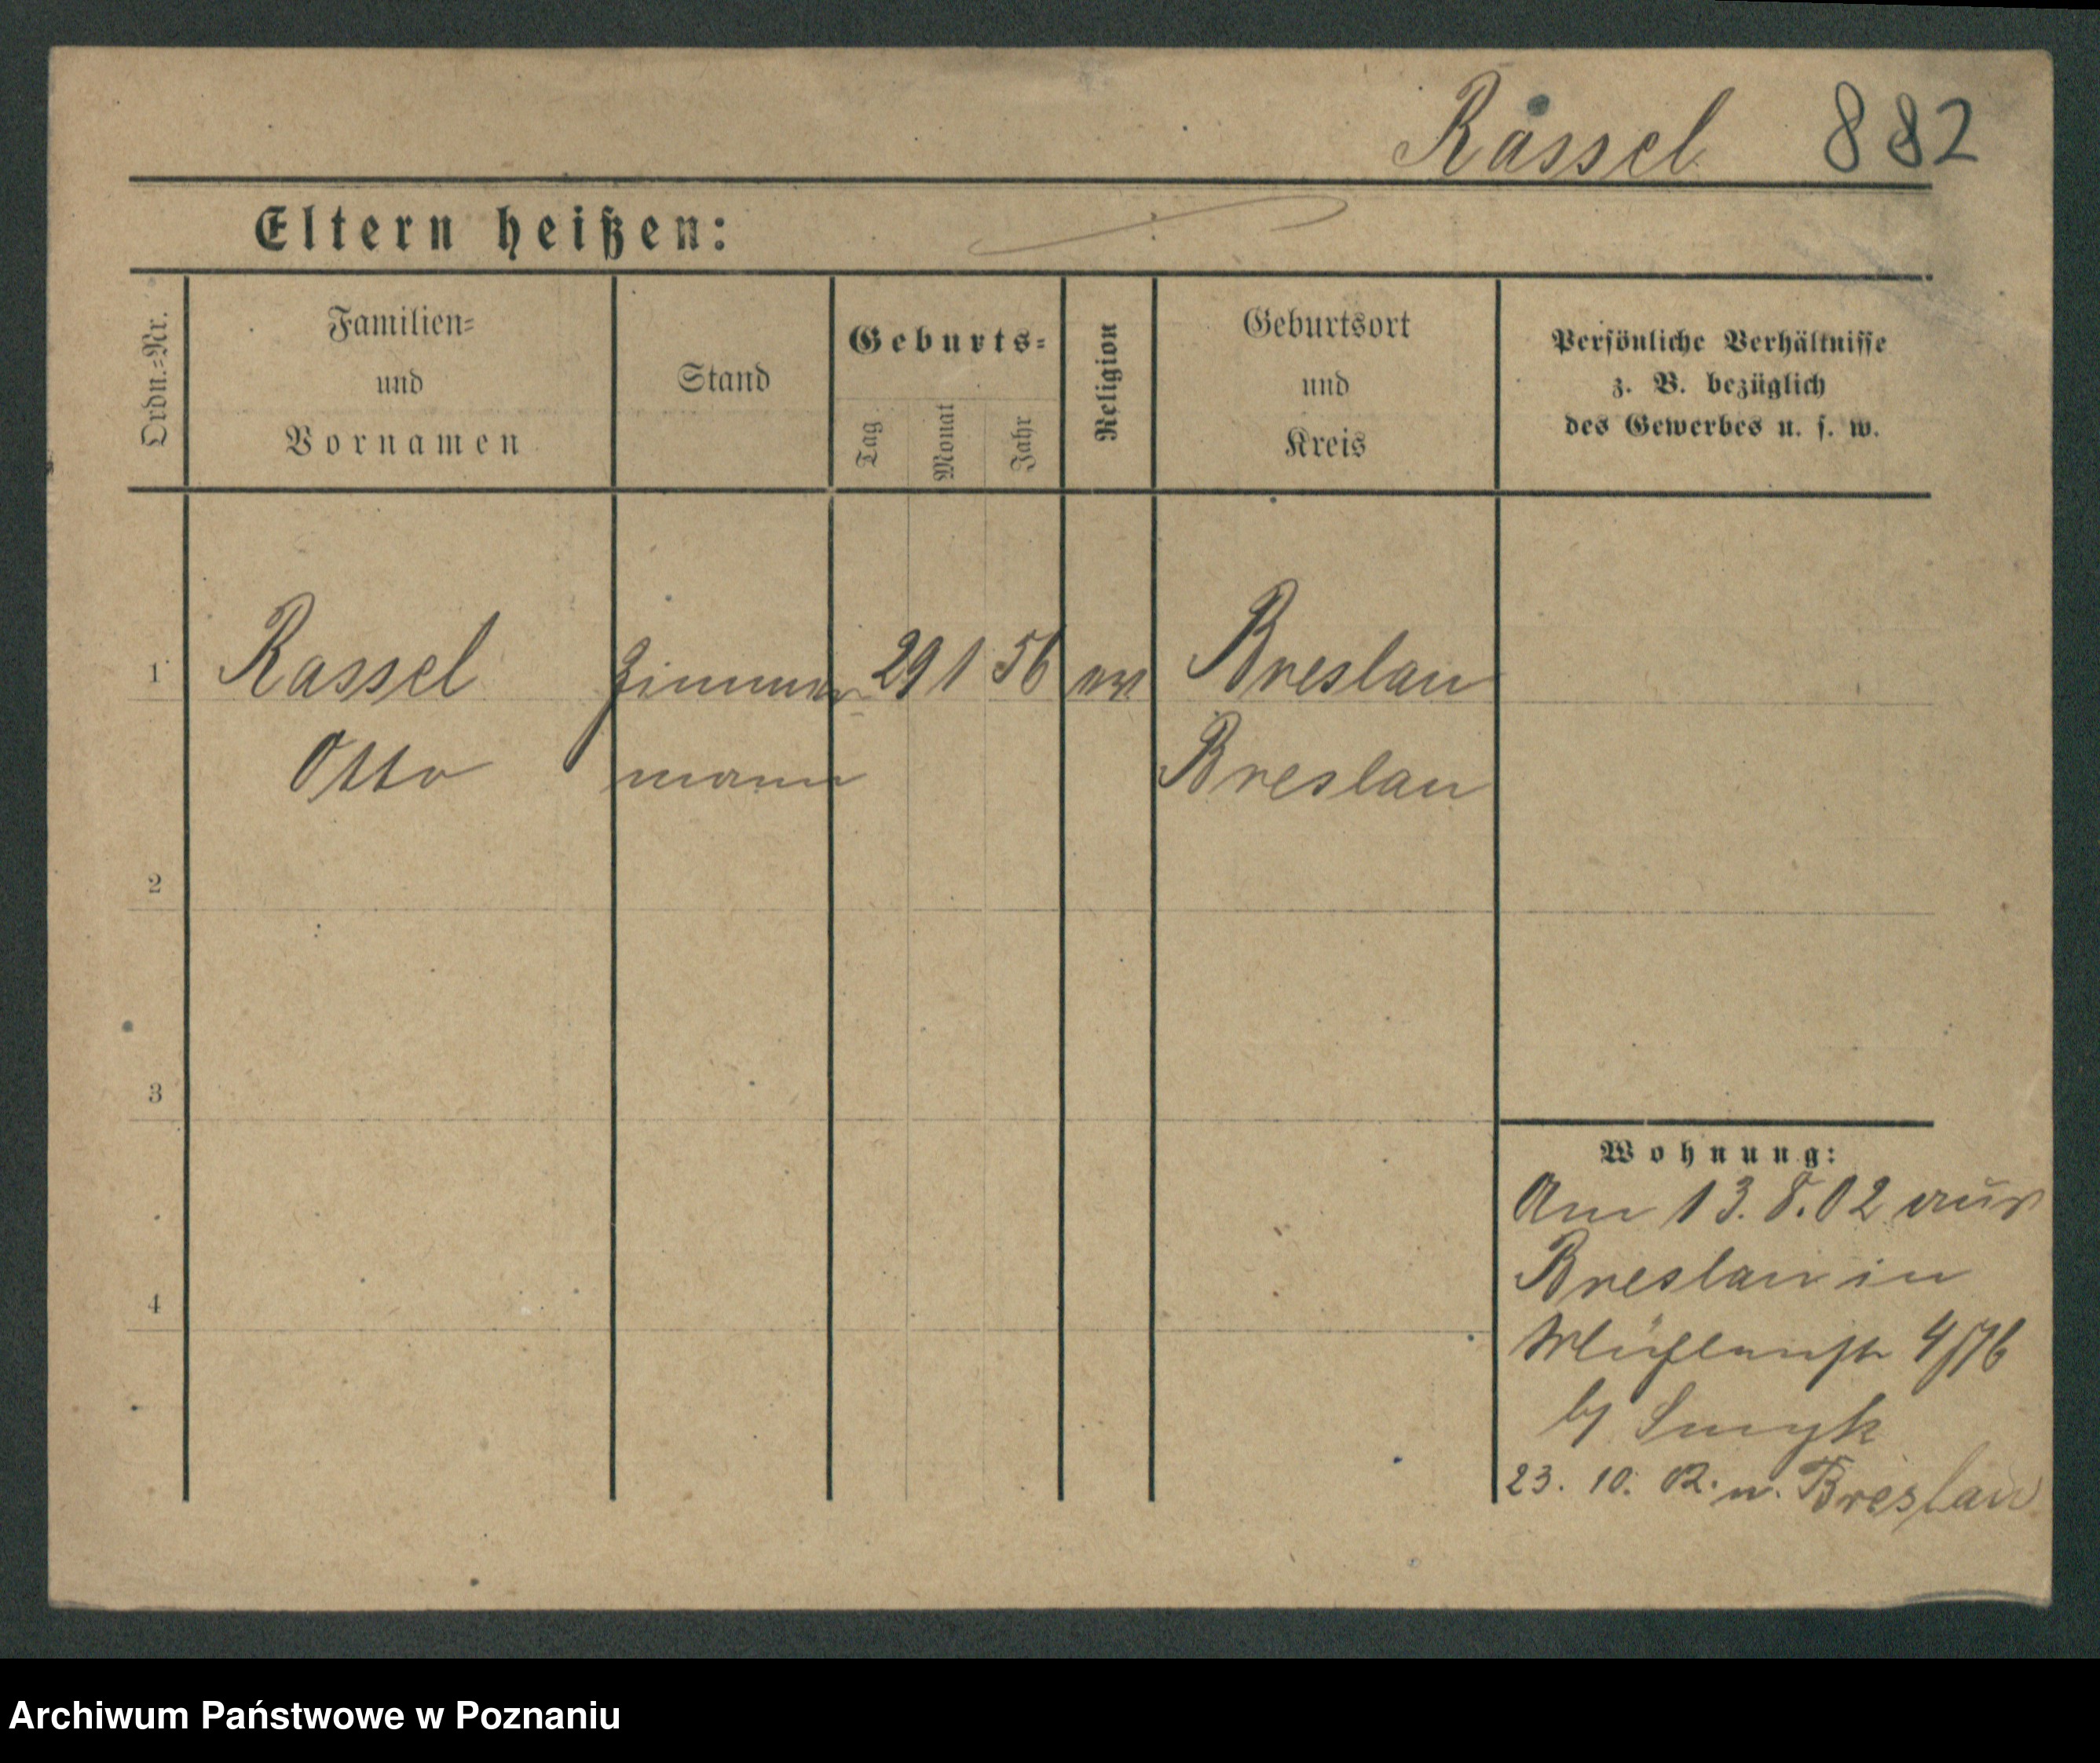 Rassel 882
Eltern heißen:
Ordn.=Nr.
Familien=
und
Vornamen
Stand
Geburts=
Tag
Monat
Jahr
Religion
Geburtsort
und
Kreis
Persönliche Verhältnisse
z. B. bezüglich
des Gewerbes u. s. w.
1 Rassel Zimmer 29 1 56 Breslau
Otto mann Breslau
2
3
4
Wohnung:
Am 13. 8. 02 aus
Breslau in
by Smyk
23. 10. 02. n. Breslau
Archiwum Państwowe w Poznaniu